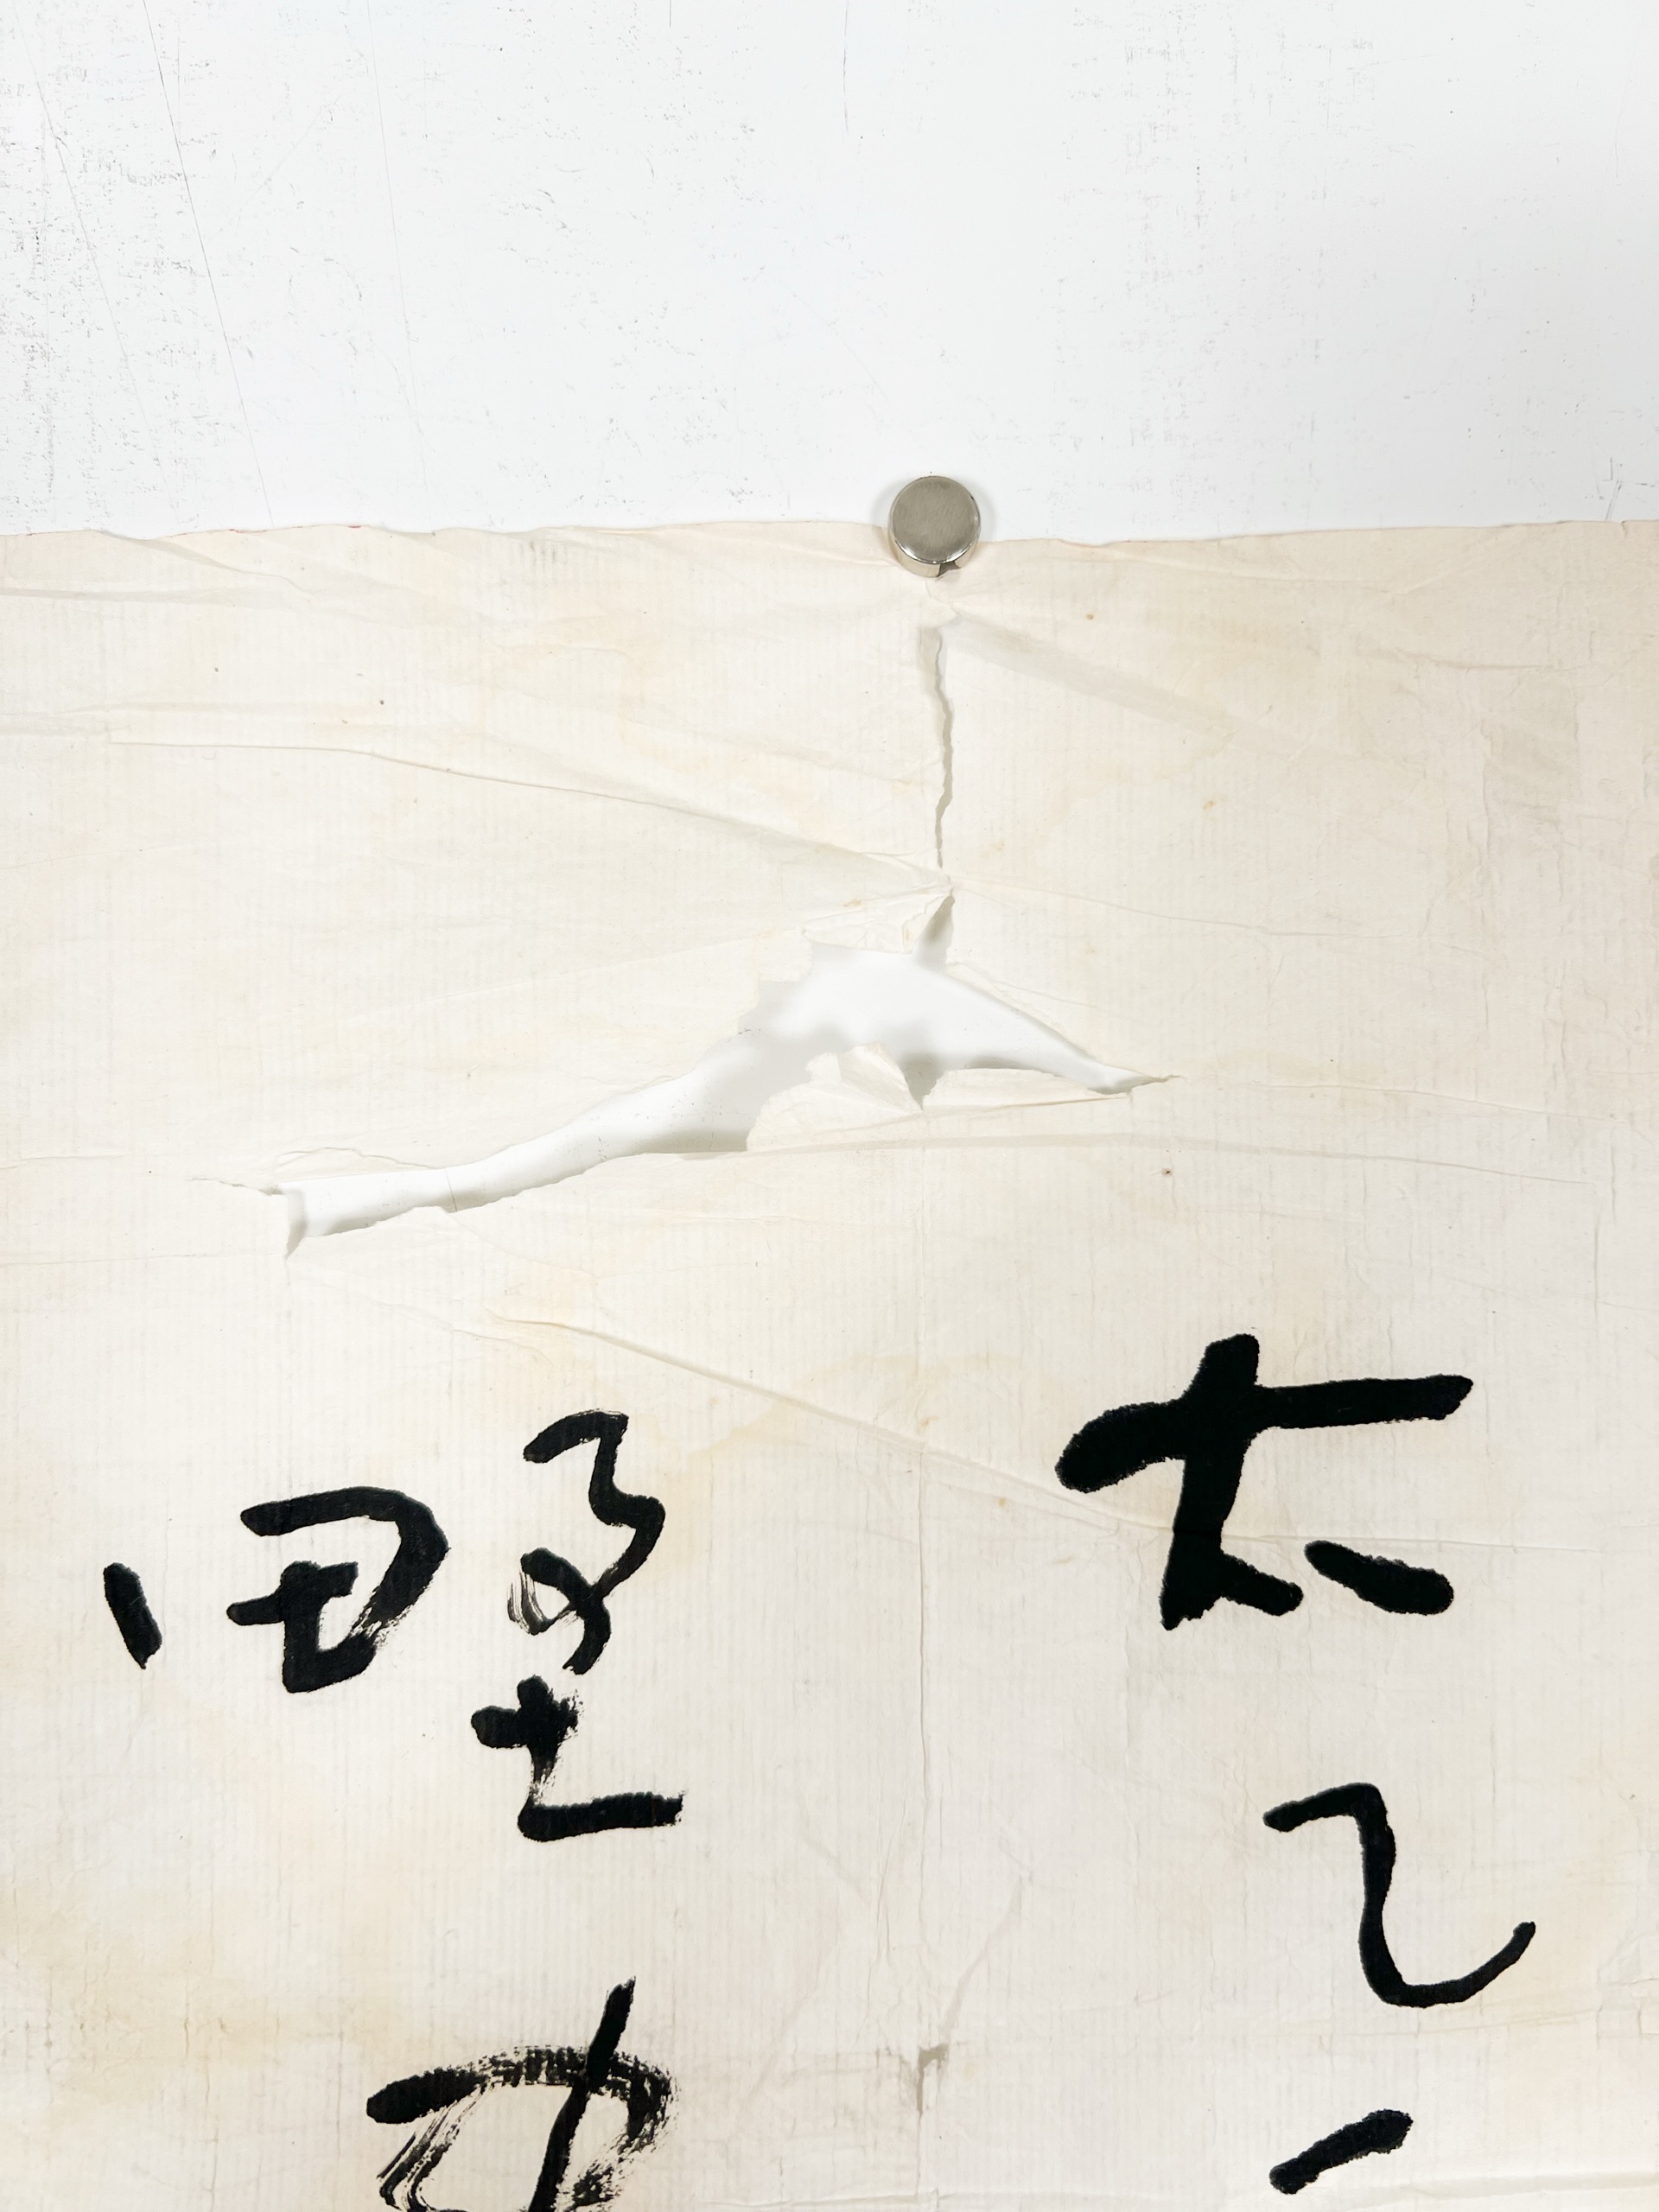 太乙
野中